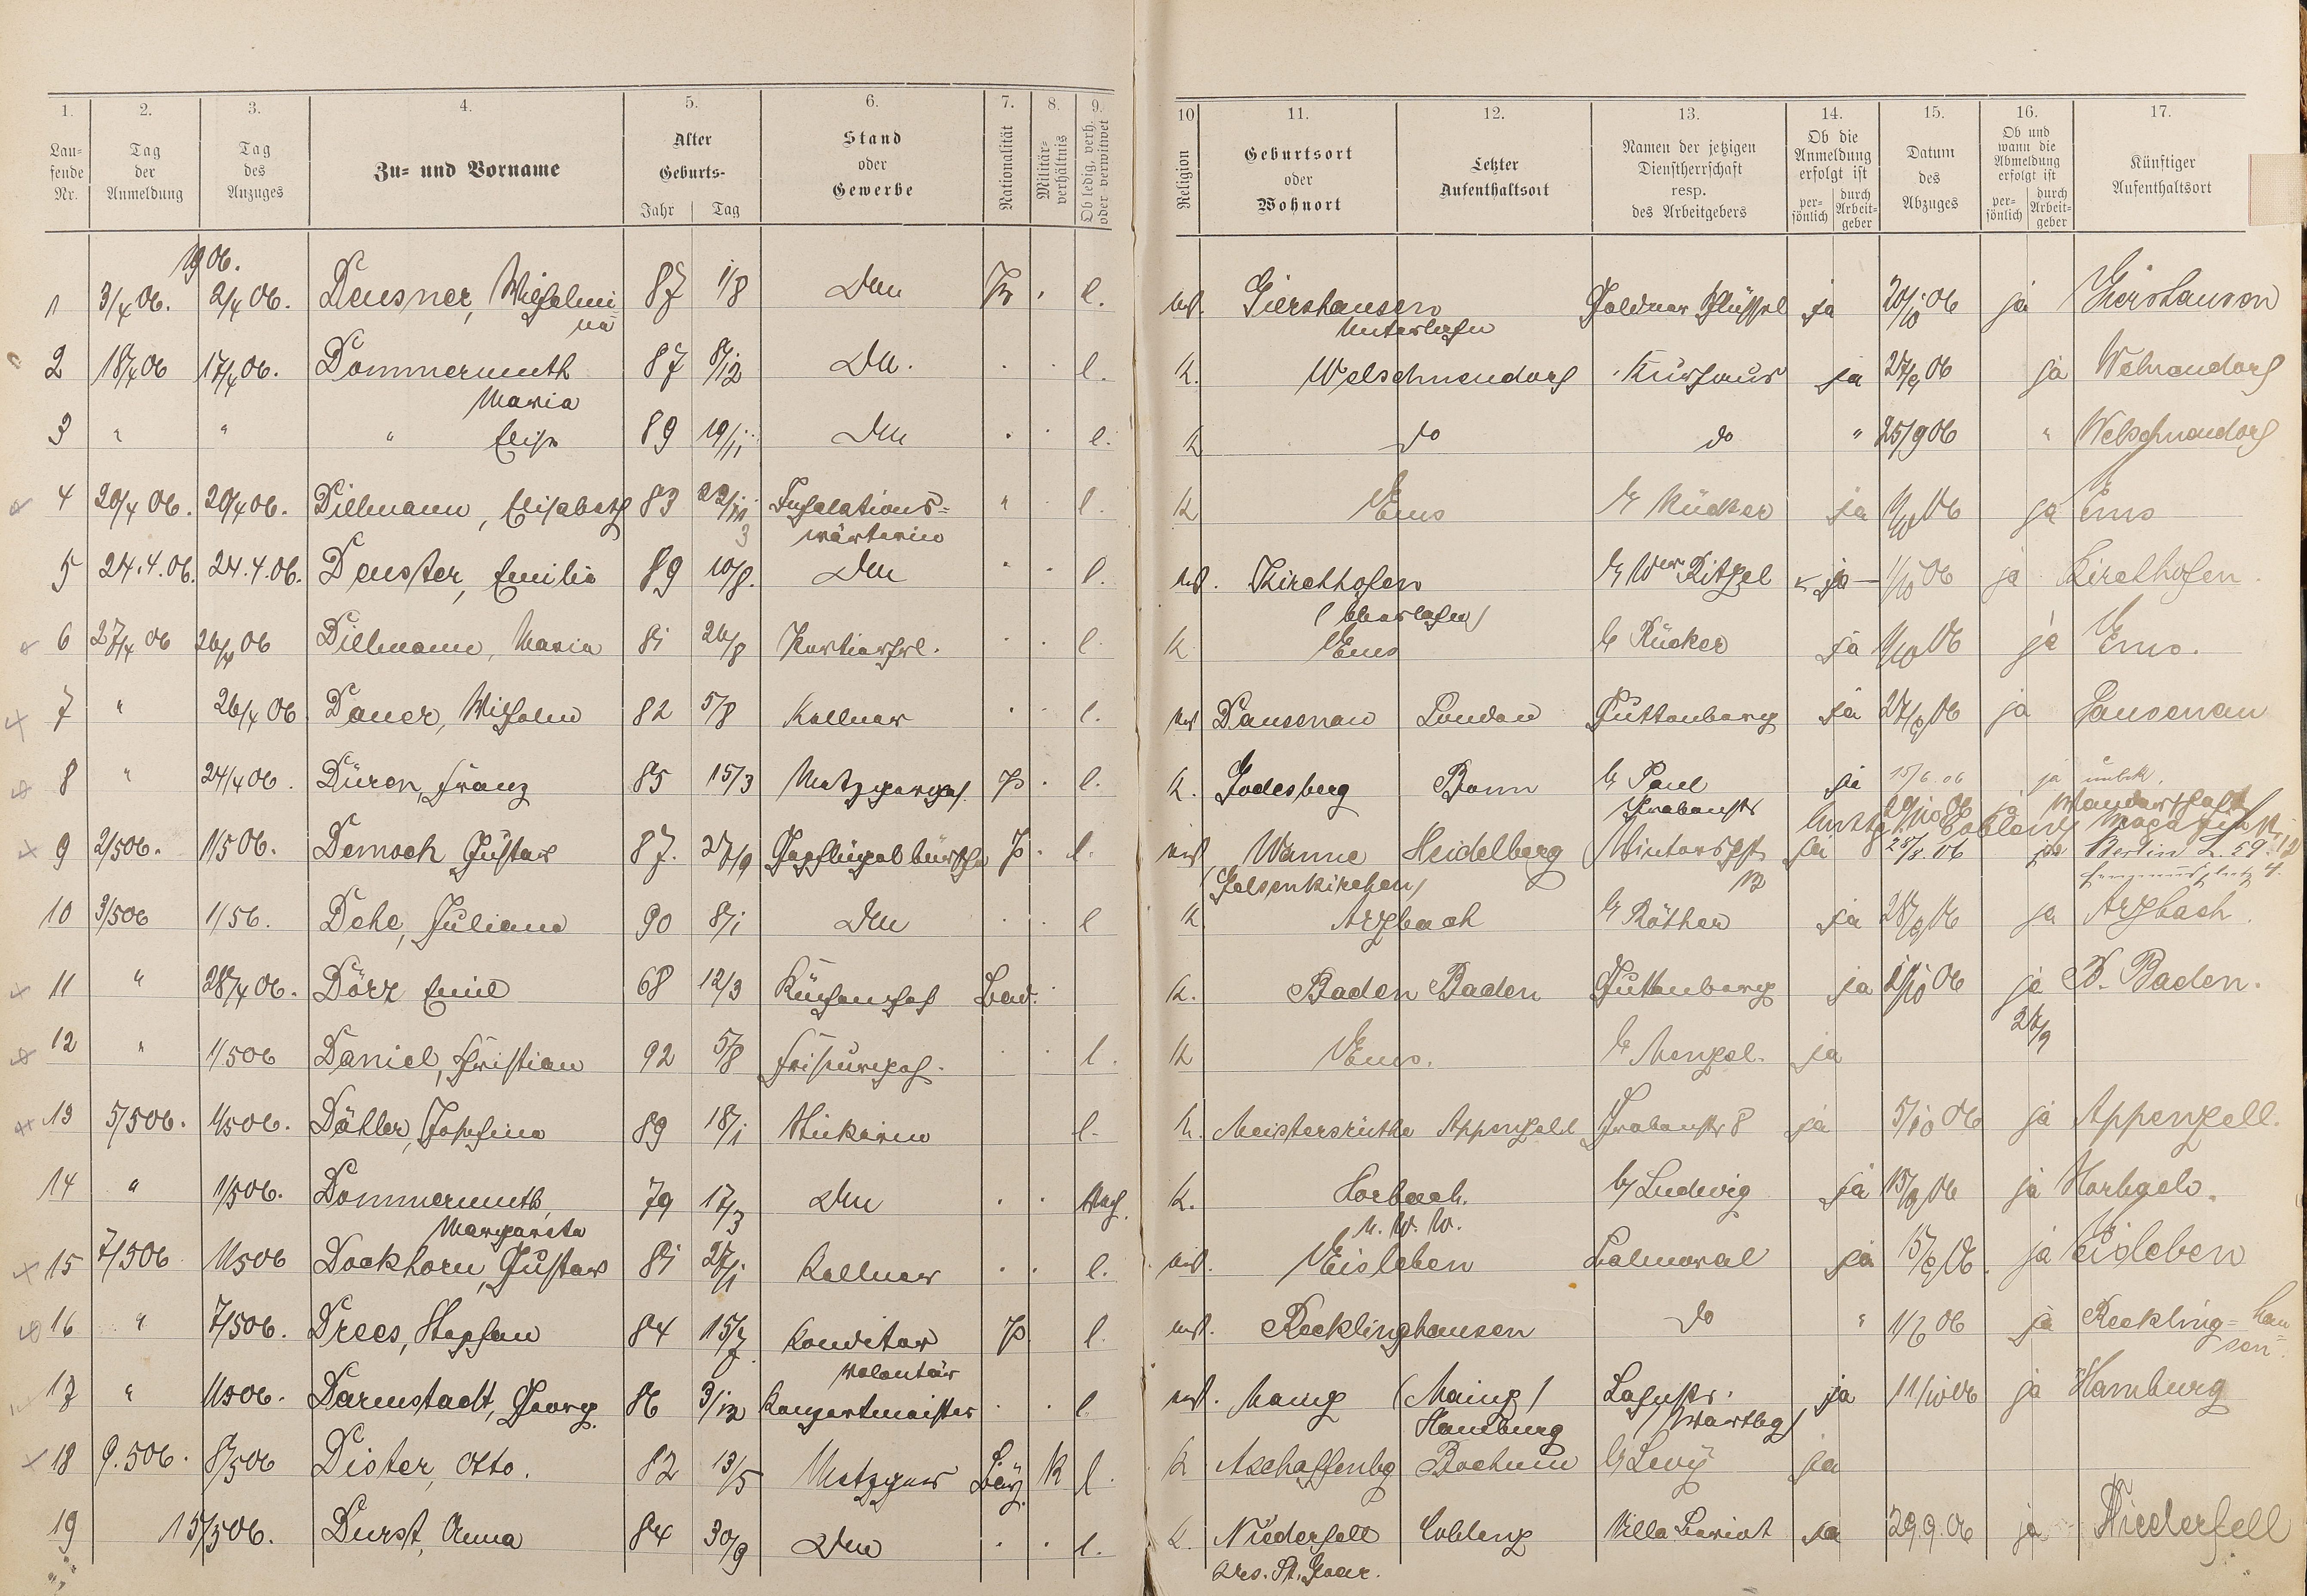 1. 2. 3. 4. 5. 6. 7. 8. 9. 10 11. 12. 13. 14. 15. 16. 17.
Lau=fende Nr. Tag der Anmeldung Tag des Anzuges Zu= und Vorname Alter Geburts- Jahr Tag Stand oder Gewerbe Nationalität Militär-verhältnis Ob ledig, verh. oder verwitwet Religion Geburtsort oder Wohnort Letzter Aufenthaltsort Namen der jetzigen Dienstherrschaft resp. des Arbeitgebers Ob die Anmeldung erfolgt ist per-sönlich durch Arbeit-geber Datum des Abzuges Ob und wann die Abmeldung erfolgt ist per-sönlich durch Arbeit-geber Künftiger Aufenthaltsort
1906.
1 3/4 06. 2/4 06. Deusner, Wilhelmi 87 1/8 Dm Pr . l. Giershausen Goldner Schlüssel ja 20/10 06 ja Giershausen
na Unterlahn
2 18/4 06 17/4 06. Dommermuth 87 8/12 Dm. . . l. K. Welschneudorf Kurhaus ja 27/9 06 ja
Maria
3 " " " Elise 89 19/11 Dm . . l. K do do " 25/9 06 " Welschneudorf
4 20/4 06. 20/4 06. Dillmann, Elisabeth 83 Inhalations= " . l. K Ems Rücker ja 06 ja Ems
wärterin
5 24.4.06. 24.4.06. Deuster, Emilie 89 10/8. Dm . . l. Kirchhofen Wwe Ritzel ja 1/10 06 ja Kirchhofen.
(Oberlahn)
6 27/4 06 26/4 06 Dillmann, Maria 81 26/8 . . l. K Ems Rücker ja 06 ja Ems.
7 " 26/4 06 Dauer, Wilhelm 82 5/8 Kellner . . l. Dausenau London Guttenberg ja 06 ja Dausenau
8 " 24/4 06. Düren, Franz 85 15/3 Metzgergeh. P . l. K. Godesberg Bonn Paul ja 15/6.06 ja unbek.
Grabenstr Wanderschaft
9 2/5 06. 1/5 06. Democh Gustav 87. 27/9 P . l. Wanne Heidelberg ja 25/8.06 ja Berlin
(Gelsenkirchen)
10 3/5 06 1/5 6. Dehe, Juliane 90 8/1 Dm . . l K Arzbach Röther ja 06 ja Arzbach.
11 " 28/4 06. Dörr Emil 68 12/3 Küchenchef Bad. K. Baden Baden Guttenberg ja 06 ja B. Baden.
12 " 1/5 06 Daniel, Christian 92 5/8 Friseurgeh. . . l. K Ems. Menzel. ja
13 5/5 06. 1/5 06. Dähler, Josefine 89 18/1 Stickerin l. K. Meistersrüthe Appenzell Grabenstr 8 ja 5/10 06 ja Appenzell.
14 " 1/5 06. Dommermuth, 79 17/3 Dm . . K. Horbach. Ludwig ja 06 ja
Margareta U. W. W.
15 7/5 06 1/5 06 Dockhorn, Gustav 81 27/1 Kellner . . l. Eisleben Balmoral ja 06. ja Eisleben
16 " 7/5 06. Drees, Stephan 84 15/7 Konditor P. l. Recklinghausen do " 1/6 06 ja Reckling=hausen.
Volontär
17 " 1/5 06. Darmstadt, Georg 86 3/12 Konzertmeister . . l Mainz (Mainz) Lahnstr. ja 11/10 06 ja Hamburg
Hamburg (Wartbg)
18 9.5 06. 8/5 06 Dister, Otto. 82 13/5 Metzger Bay. K l. K Aschaffenbg Bochum Levy ja
19 15/5 06. Durst, Anna 84 30/9 Dm . . l. K. Niederfell Coblenz Villa ja 29.9.06 ja Niederfell
Krs. St. Goar.